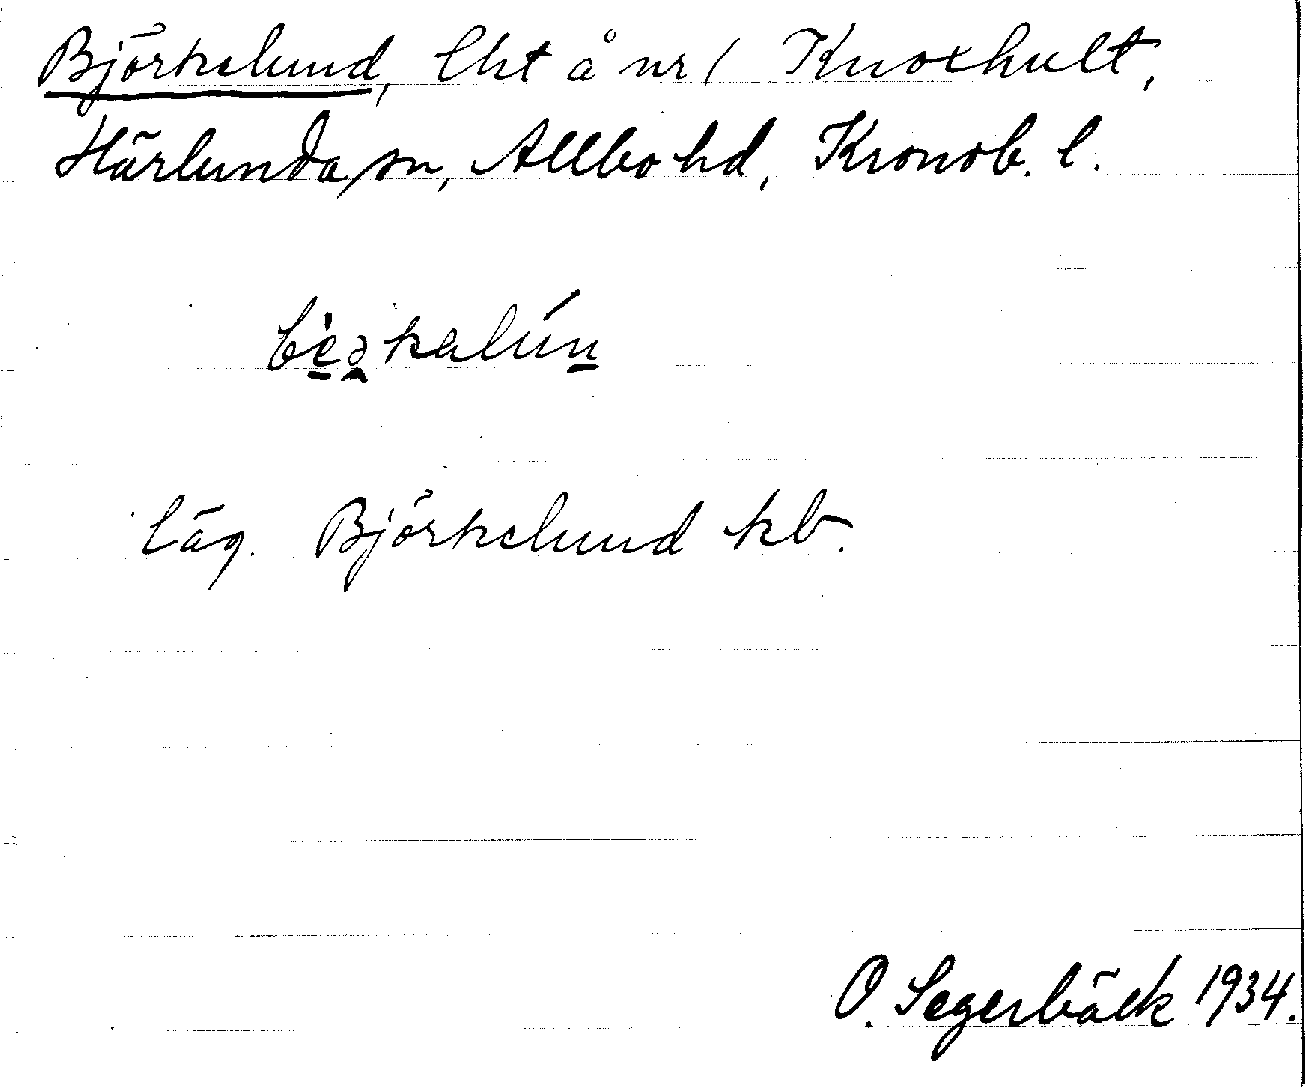 Björkelund, lht å nr 1 Knoxhult,
Härlunda sn, Allbo hd, Kronob. l.
läg. Björkelund kb.
O. Segerbäck 1934.